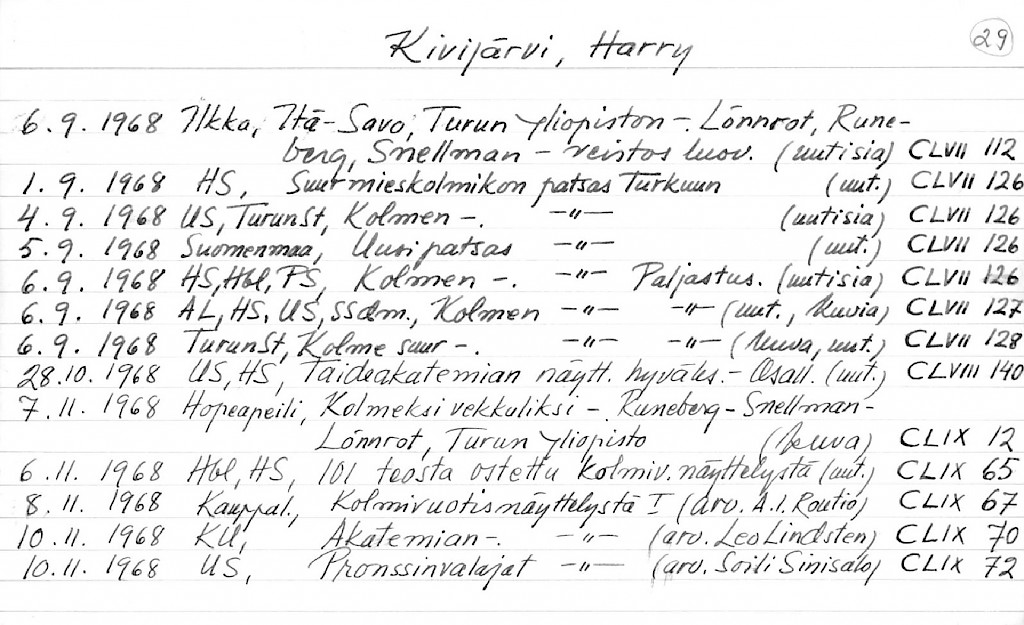 Kivijärvi, Harry
29
6.9. 1968 Ilkka, Itä-Savo, Turun yliopiston -. Lönnrot, Rune-
berg, Snellman - veistos luov. (uutisia) CLVII 112
1.9. 1968 HS, Suurmieskolmikon patsas Turkuun (uut.) CLVII 126
4.9. 1968 US, TurunSt, Kolmen -. -"- (uutisia) CLVII 126
5.9. 1968 Suomenmaa, Uusi patsas -"- (uut.) CLVII 126
6.9. 1968 HS, Hbl, PS, Kolmen -. -"- Paljastus. (uutisia) CLVII 126
6.9. 1968 AL, HS, US, SSdm., Kolmen -"- -"- (uut., kuvia) CLVII 127
6.9. 1968 TurunSt, Kolme suur -. -"- -"- (kuva, uut.) CLVII 128
28.10. 1968 US, HS, Taideakatemian näytt. hyväks. - Osall. (uut.) CLVIII 140
7.11. 1968 Hopeapeili, Kolmeksi vekkuliksi - Runeberg - Snellman -
Lönnrot, Turun yliopisto (kuva) CLIX 12
6.11. 1968 Hbl, HS, 101 teosta ostettu kolmiv. näyttelystä (uut.) CLIX 65
8.11. 1968 Kauppal., Kolmivuotisnäyttelystä I (arv. A.I. Routio) CLIX 67
10.11. 1968 KU, Akatemian -. -"- (arv. Leo Lindsten) CLIX 70
10.11. 1968 US, Pronssinvalajat -"- (arv. Soili Sinisalo) CLIX 72